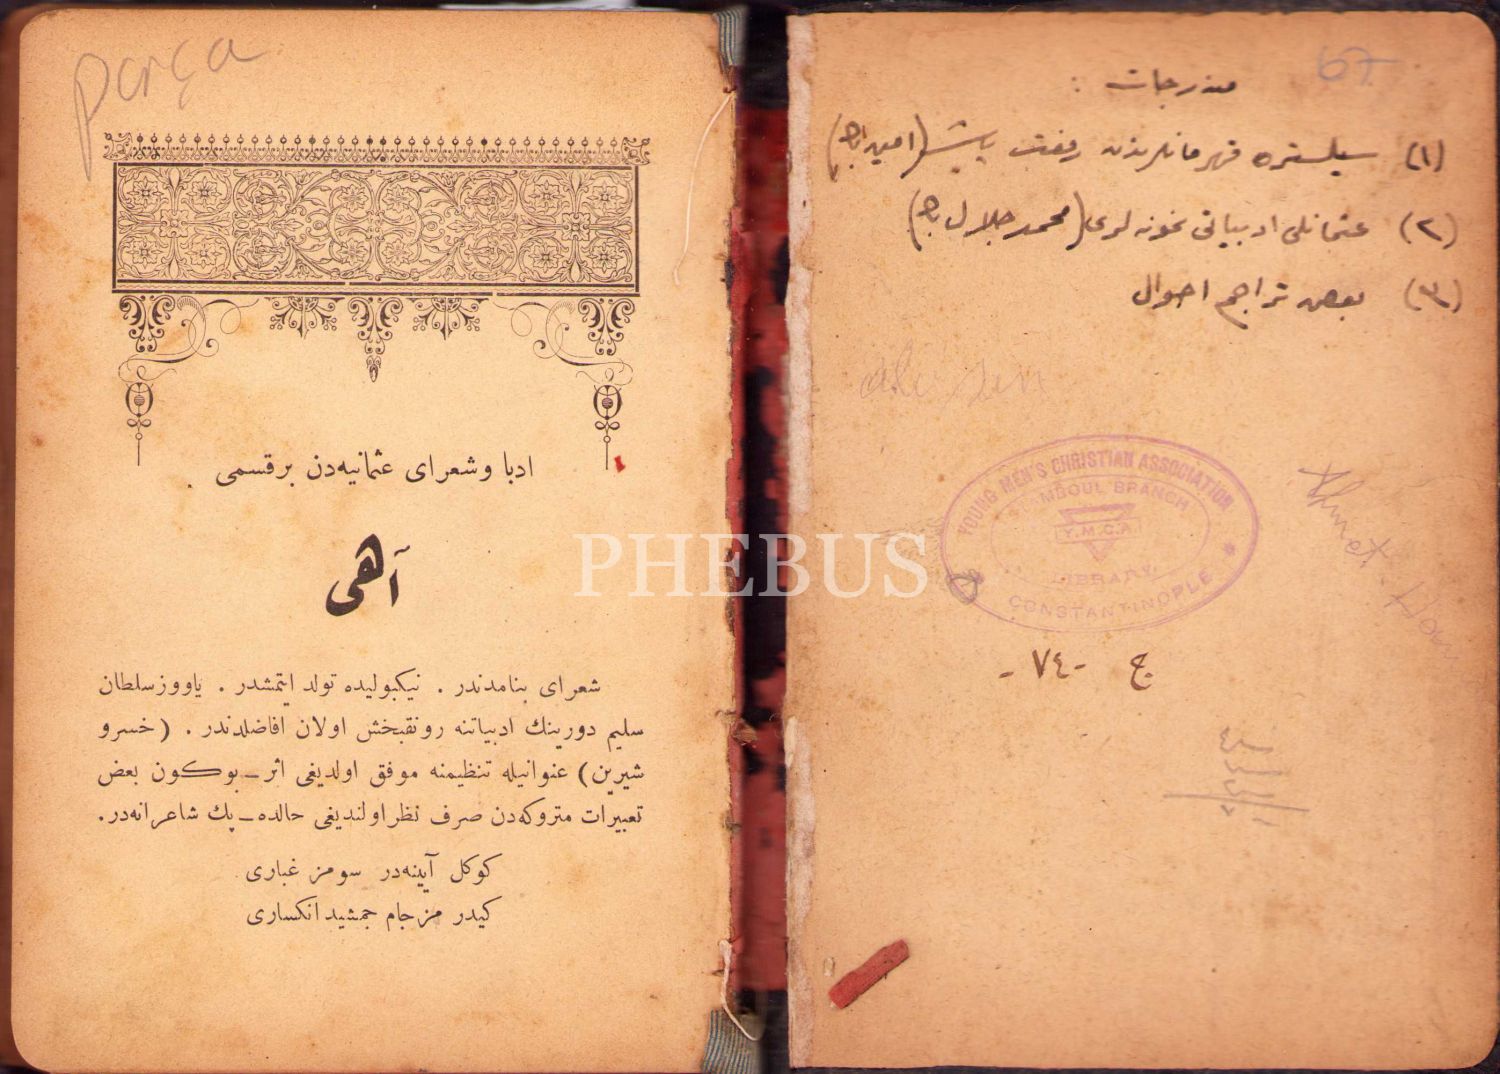 مندرجات :
(١) سلستره قهرمانلرندن رفعت پاشا (امید اب‍)
(٢) عثمانلی ادبیاتی نمونه لری (محمد جلال ب‍)
(٣) بعض تراجم احوال
67
YOUNG MEN'S CHRISTIAN ASSOCIATION
STAMBOUL BRANCH
Y.M.C.A
LIBRARY
CONSTANTINOPLE
Ahmet
ج -٧٤-
Parça
ادبا وشعرای عثمانیه‌دن برقسمی
آهی
شعرای بنامدندر . نیکبولیده تولد ایتمشدر . یاووزسلطان
سلیم دورینك ادبیاتنه رونقبخش اولان افاضلدندر . (خسرو
شیرین) عنوانیله تنظیمنه موفق اولدیغی اثر ـ بوکون بعض
تعبیرات متروکه‌دن صرف نظر اولندیغی حالده ـ پك شاعرانه‌در.
کوکل آیینه‌در سومز غباری
کیدر مز جام جمشید انکساری
PHEBUS